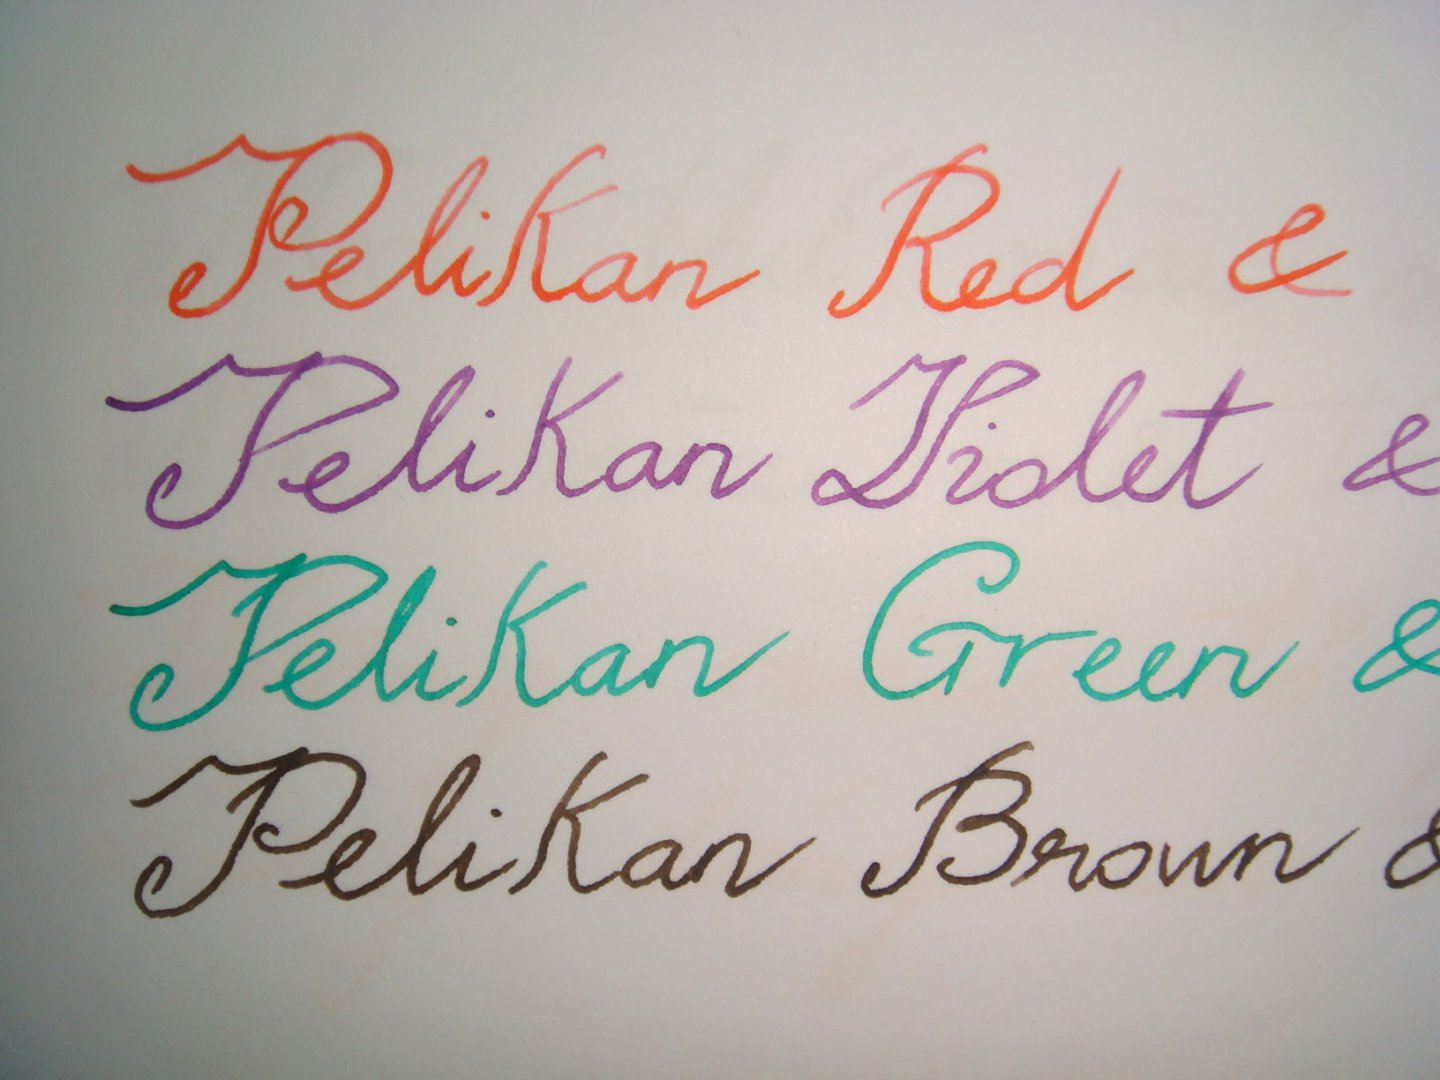 Pelikan Red &
Pelikan Violet &
Pelikan Green &
Pelikan Brown &